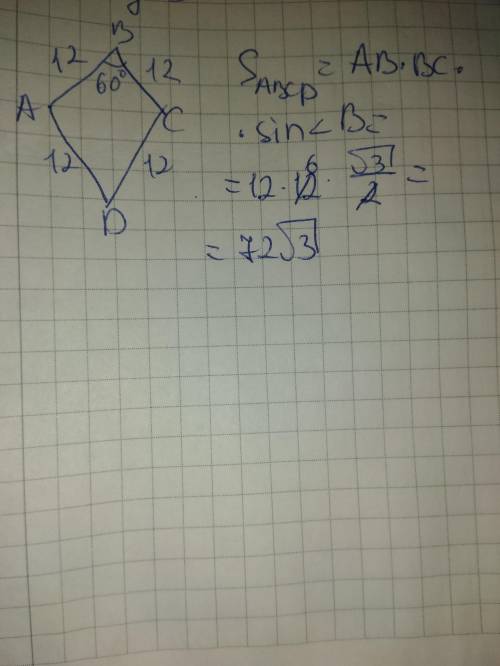 B
12 12
60°
A C
12 12
D
S_ABCD = AB·BC·
·sin<B=
=12·12 6·√3/2=
=72√3